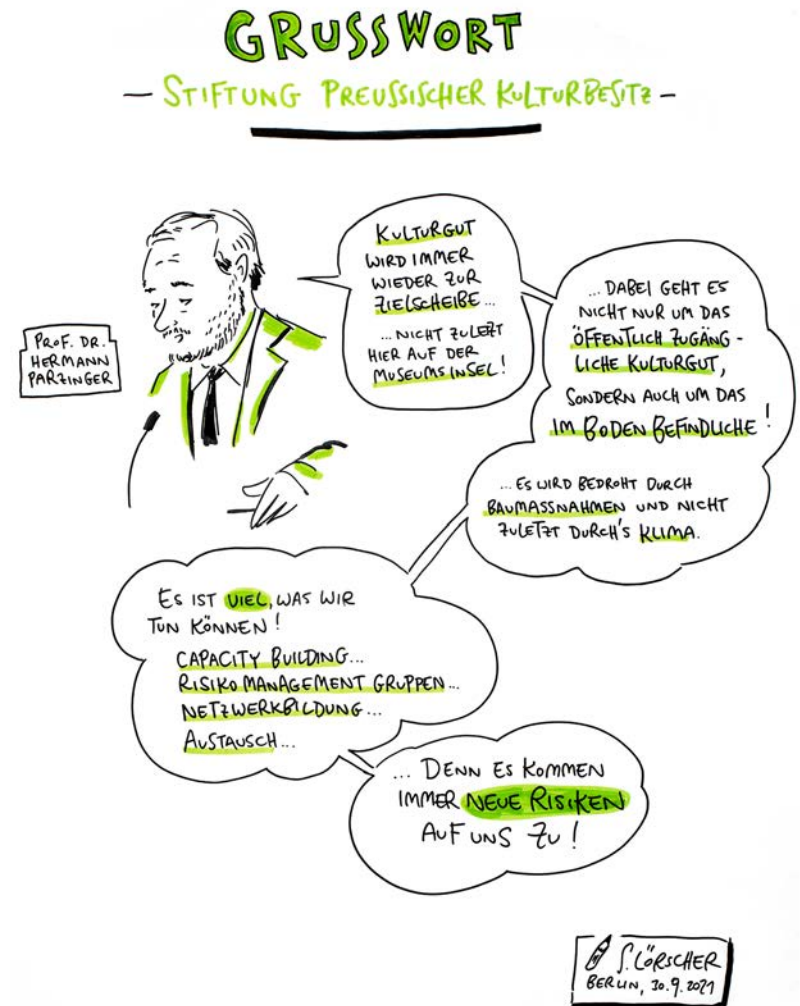 GRUSSWORT
– STIFTUNG PREUSSISCHER KULTURBESITZ –
PROF. DR.
HERMANN
PARZINGER
KULTURGUT
WIRD IMMER
WIEDER ZUR
ZIELSCHEIBE...
...NICHT ZULEZT
HIER AUF DER
MUSEUMSINSEL!
...DABEI GEHT ES
NICHT NUR UM DAS
ÖFFENTLICH ZUGÄNG-
LICHE KULTURGUT,
SONDERN AUCH UM DAS
IM BODEN BEFINDLICHE!
...ES WIRD BEDROHT DURCH
BAUMASSNAHMEN UND NICHT
ZULETZT DURCH'S KLIMA.
ES IST VIEL, WAS WIR
TUN KÖNNEN!
CAPACITY BUILDING...
RISIKO MANAGEMENT GRUPPEN...
NETZWERKBILDUNG...
AUSTAUSCH...
... DENN ES KOMMEN
IMMER NEUE RISIKEN
AUF UNS ZU!
S. LÖRSCHER
BERLIN, 30.9.2021